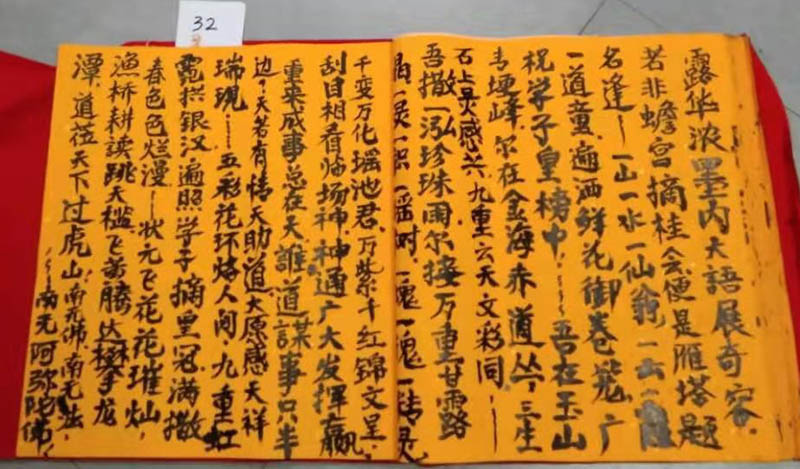 32
露华浓墨内大語展奇容
若非蟾宫摘桂会便是雁塔题
名逢～一山一水一仙翁一山一
一道童遍洒鲜花御卷苑广
祝学子皇榜中～～吾在玉山
青埂峰尔在金海赤道丛三生
石上灵感共九重云天文彩同～
吾撒一泓珍珠雨尔接万重甘露
千变万化瑶池君万紫千红锦文呈
刮目相看临场神神通广大发挥赢
重来成事总在天誰道謀事只半
边天若有情天助道大愿感天祥
瑞現～～五彩花环烧人间九重虹
霓拱银汉遍照学子摘皇冠满撒
春色色烂漫～状元飞花花璀灿
渔桥耕读跳天槛飞龙腾达攀龙
潭道莅天下过虎山南无佛南无法
南无阿弥陀佛